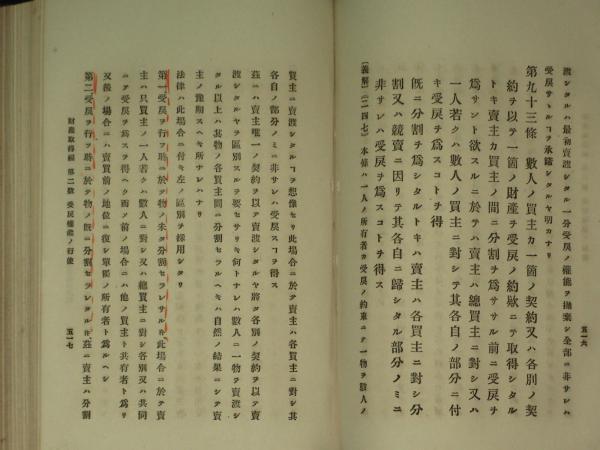 渡シタルハ最初賣渡シタル一分受戻ノ權能ヲ抛棄シ全部ニ非サレハ
受戻サヽルコヲ承諾シタルヤ明カナリ
第九十三條 數人ノ買主カ一箇ノ契約又ハ各別ノ契
約ヲ以テ一箇ノ財産ヲ受戻ノ約款ニテ取得シタル
トキ賣主カ買主ノ間ニ分割ヲ爲サヽル前ニ受戻ヲ
爲サント欲スルニ於テハ賣主ハ總買主ニ對シ又ハ
一人若クハ數人ノ買主ニ對シテ其各自ノ部分ニ付
キ受戻ヲ爲スコトヲ得
旣ニ分割ヲ爲シタルトキハ賣主ハ各買主ニ對シ分
割又ハ競賣ニ因リテ其各自ニ歸シタル部分ノミニ
非サレハ受戻ヲ爲スコトヲ得ス
〔義解〕(二四七) 本條ハ一人ノ所有者カ受戻ノ約束ニテ一物ヲ數人ノ
五一六
買主ニ賣渡シタルコヲ想像セリ此場合ニ於テ賣主ハ各買主ニ對シ其
各自ノ部分ノミニ非サレハ受戻スコヲ得ス
茲ニハ賣主唯一ノ契約ヲ以テ賣渡シタルヤ將タ各別ノ契約ヲ以テ賣
渡シタルヤヲ區別スルヲ要セサリキ何トナレハ數人ニ一物ヲ賣渡シ
タル以上ハ其物ノ各買主間ニ分割セラルヘキハ自然ノ結果ニシテ賣
主ノ豫期スヘキ所ナレハナリ
法律ハ此場合ニ付キ左ノ區別ヲ採用シタリ
第一、受戻ヲ行フ時ニ於テ物ノ未タ分割セラレサルキ此場合ニ於テ賣
主ハ只買主ノ一人若クハ數人ニ對シ又ハ總買主ニ對シ各別又ハ共同
ニテ受戻ヲ爲スヲ得ヘク而メ前ノ場合ニハ他ノ買主ト共有者ト爲リ
又後ノ場合ニハ賣買前ノ地位ニ復シ單獨ノ所有者ト爲ルヘシ
第二、受戻ヲ行フ時ニ於テ物ノ旣ニ分割セラレタルキ 茲ニ賣主ハ分割
財産取得編 第二款 受戻權能ノ行使
五一七